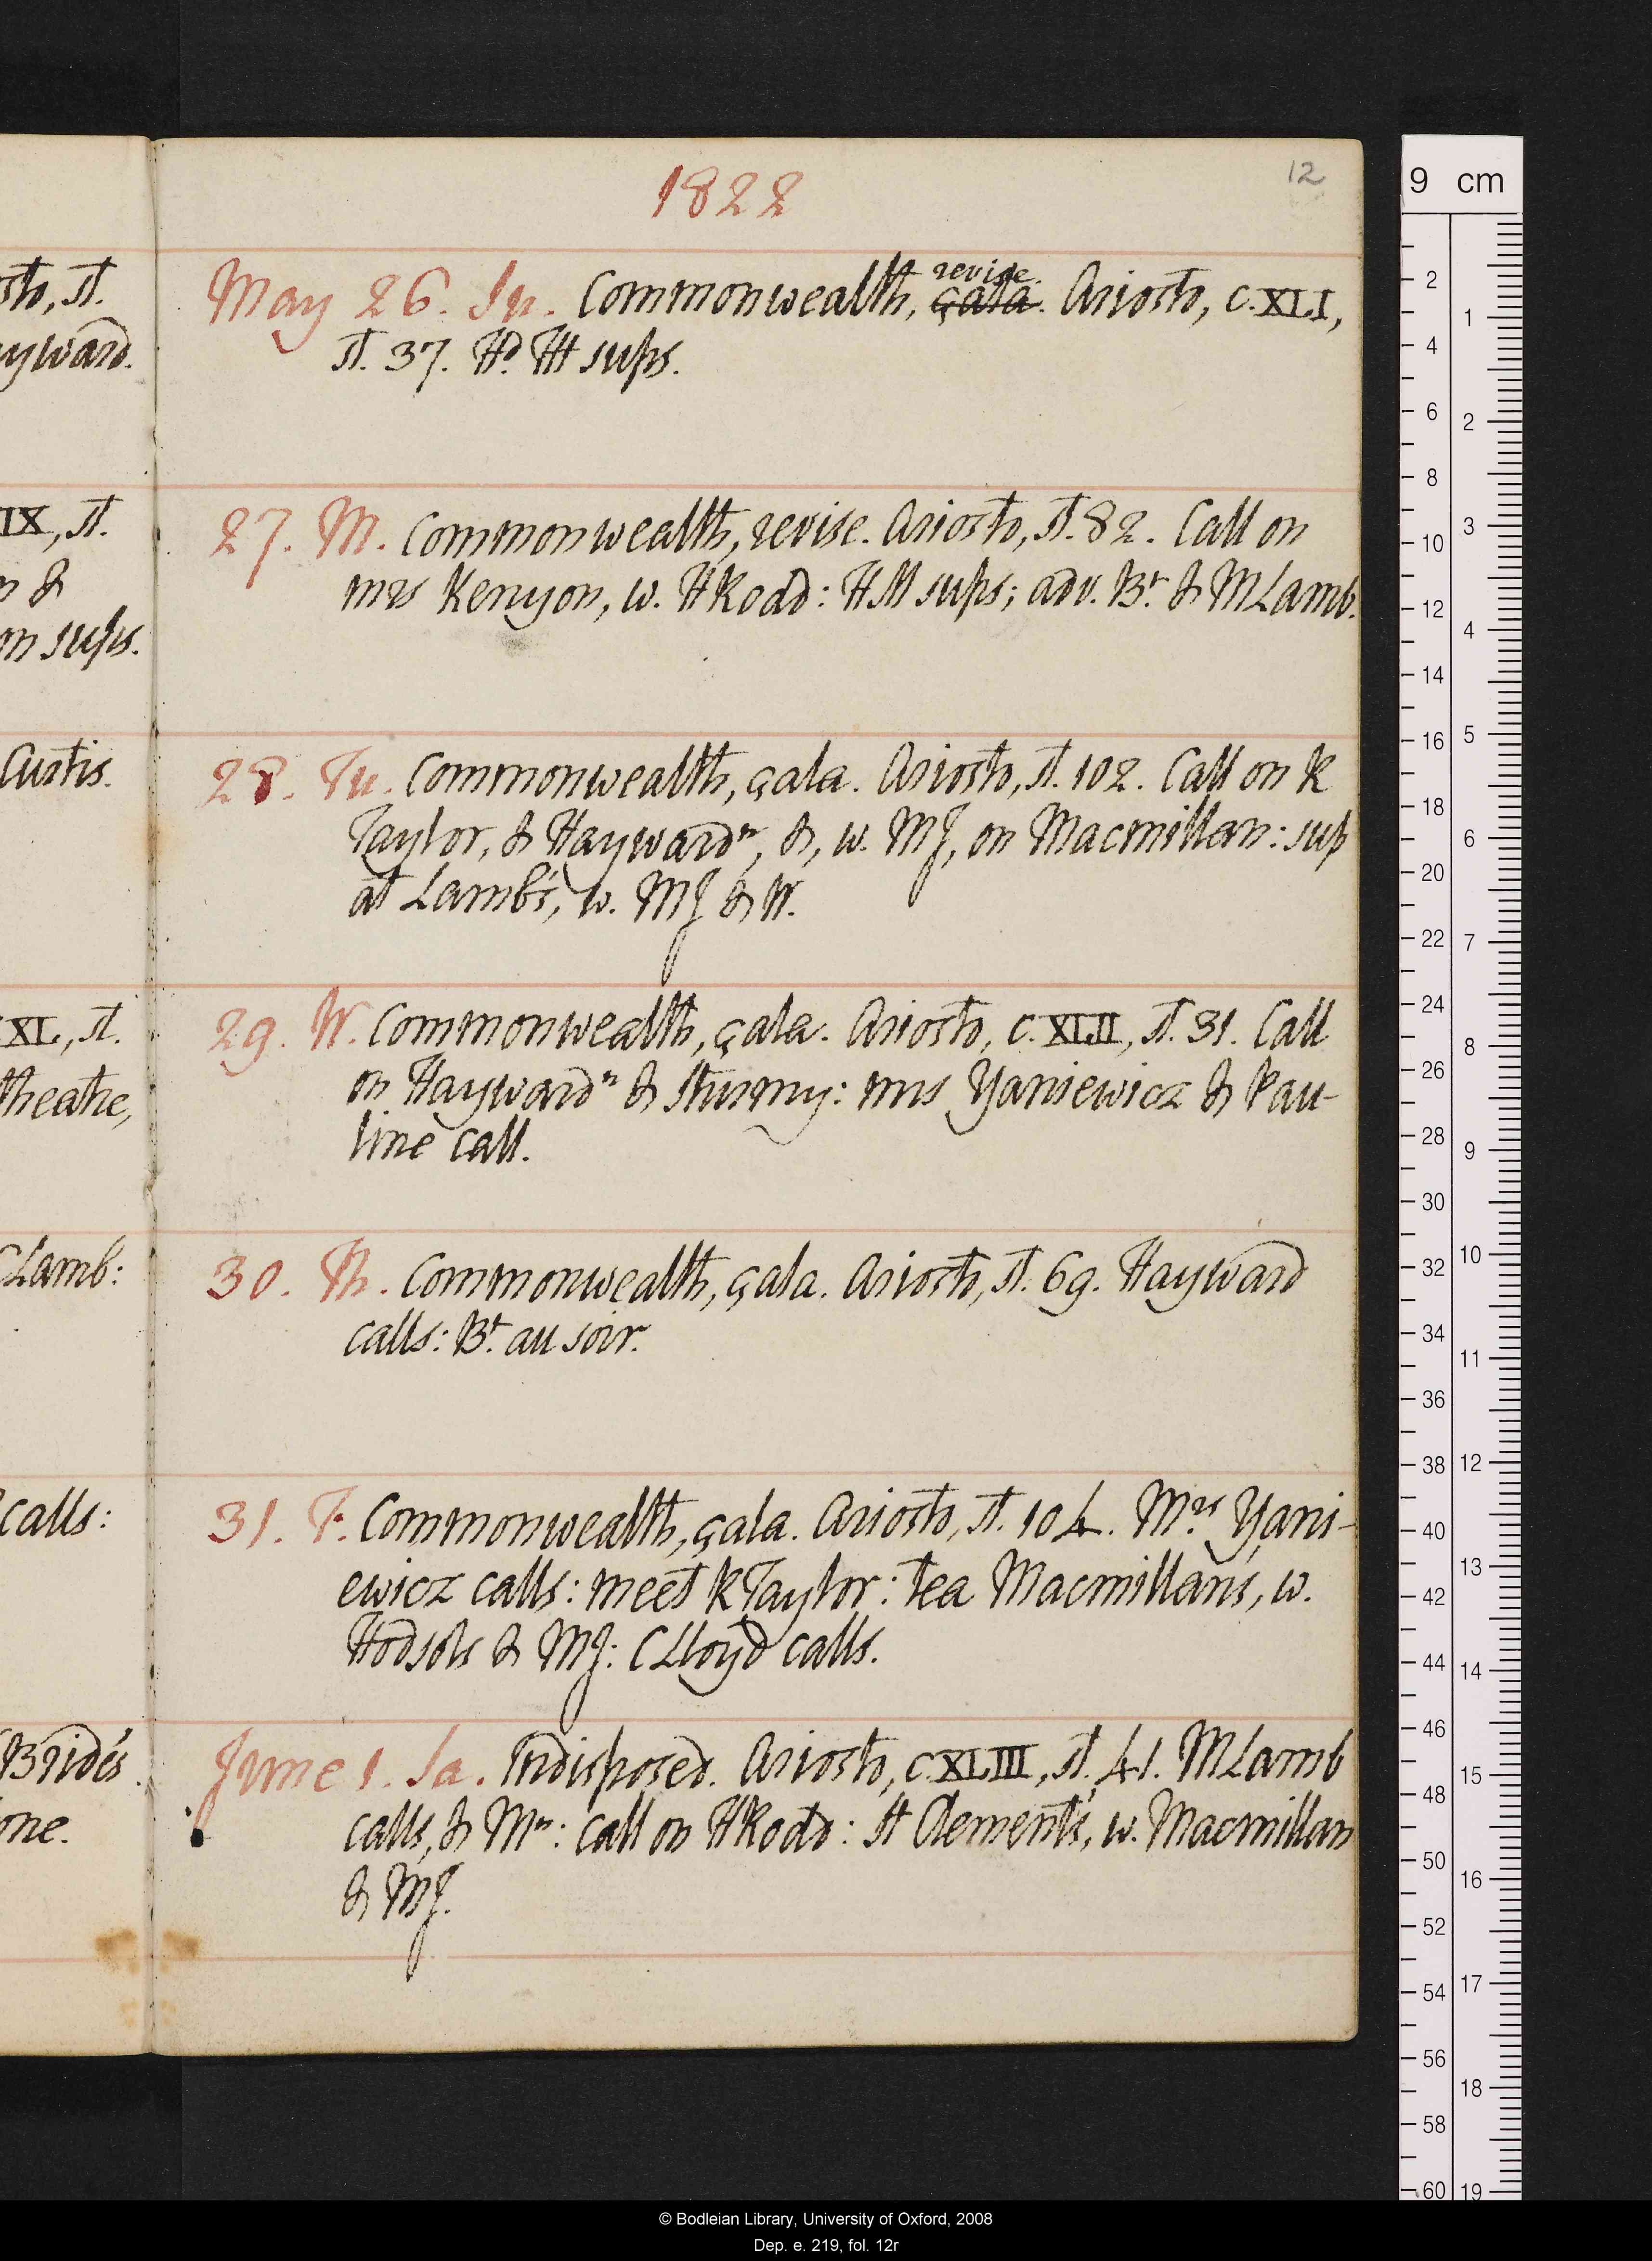 1822
12
May 26. Su. Commonwealth, revise çala. Ariosto, c. XLI,
st. 37. Hd. HM sups.
27. M. Commonwealth, revise. Ariosto, st. 82. Call on
mrs Kenyon, w. HRodd: HM sups; adv. Bt. & MLamb.
28. Tu. Commonwealth, çala. Ariosto, st. 102. Call on R
Taylor, & Haywardn, &, w. MJ, on Macmillan: sup
at Lamb's, w. MJ & W.
29. W. Commonwealth, çala. Ariosto, c. XLII, st. 31. Call
on Haywardn & Sturmy: mrs Yaniewicz & Pau-
line call.
30. Th. Commonwealth, çala. Ariosto, st. 69. Hayward
calls: Bt. au soir.
31. F. Commonwealth, çala. Ariosto, st. 104. Mrs Yani-
ewicz calls: meet RTaylor: tea Macmillan's, w.
Hodsols & MJ: CLloyd calls.
June 1. Sa. Indisposed. Ariosto, c. XLIII, st. 41. MLamb
calls, & Mn: call on HRodd: St Clement's, w. Macmillan
& MJ.
sto, st.
yward.
IX, st.
n &
on sups.
Curtis.
XL, st.
theatre,
CLamb:
calls:
Bride's.
one.
9 cm
2 4 6 8 10 12 14 16 18 20 22 24 26 28 30 32 34 36 38 40 42 44 46 48 50 52 54 56 58 60
1 2 3 4 5 6 7 8 9 10 11 12 13 14 15 16 17 18 19
© Bodleian Library, University of Oxford, 2008
Dep. e. 219, fol. 12r